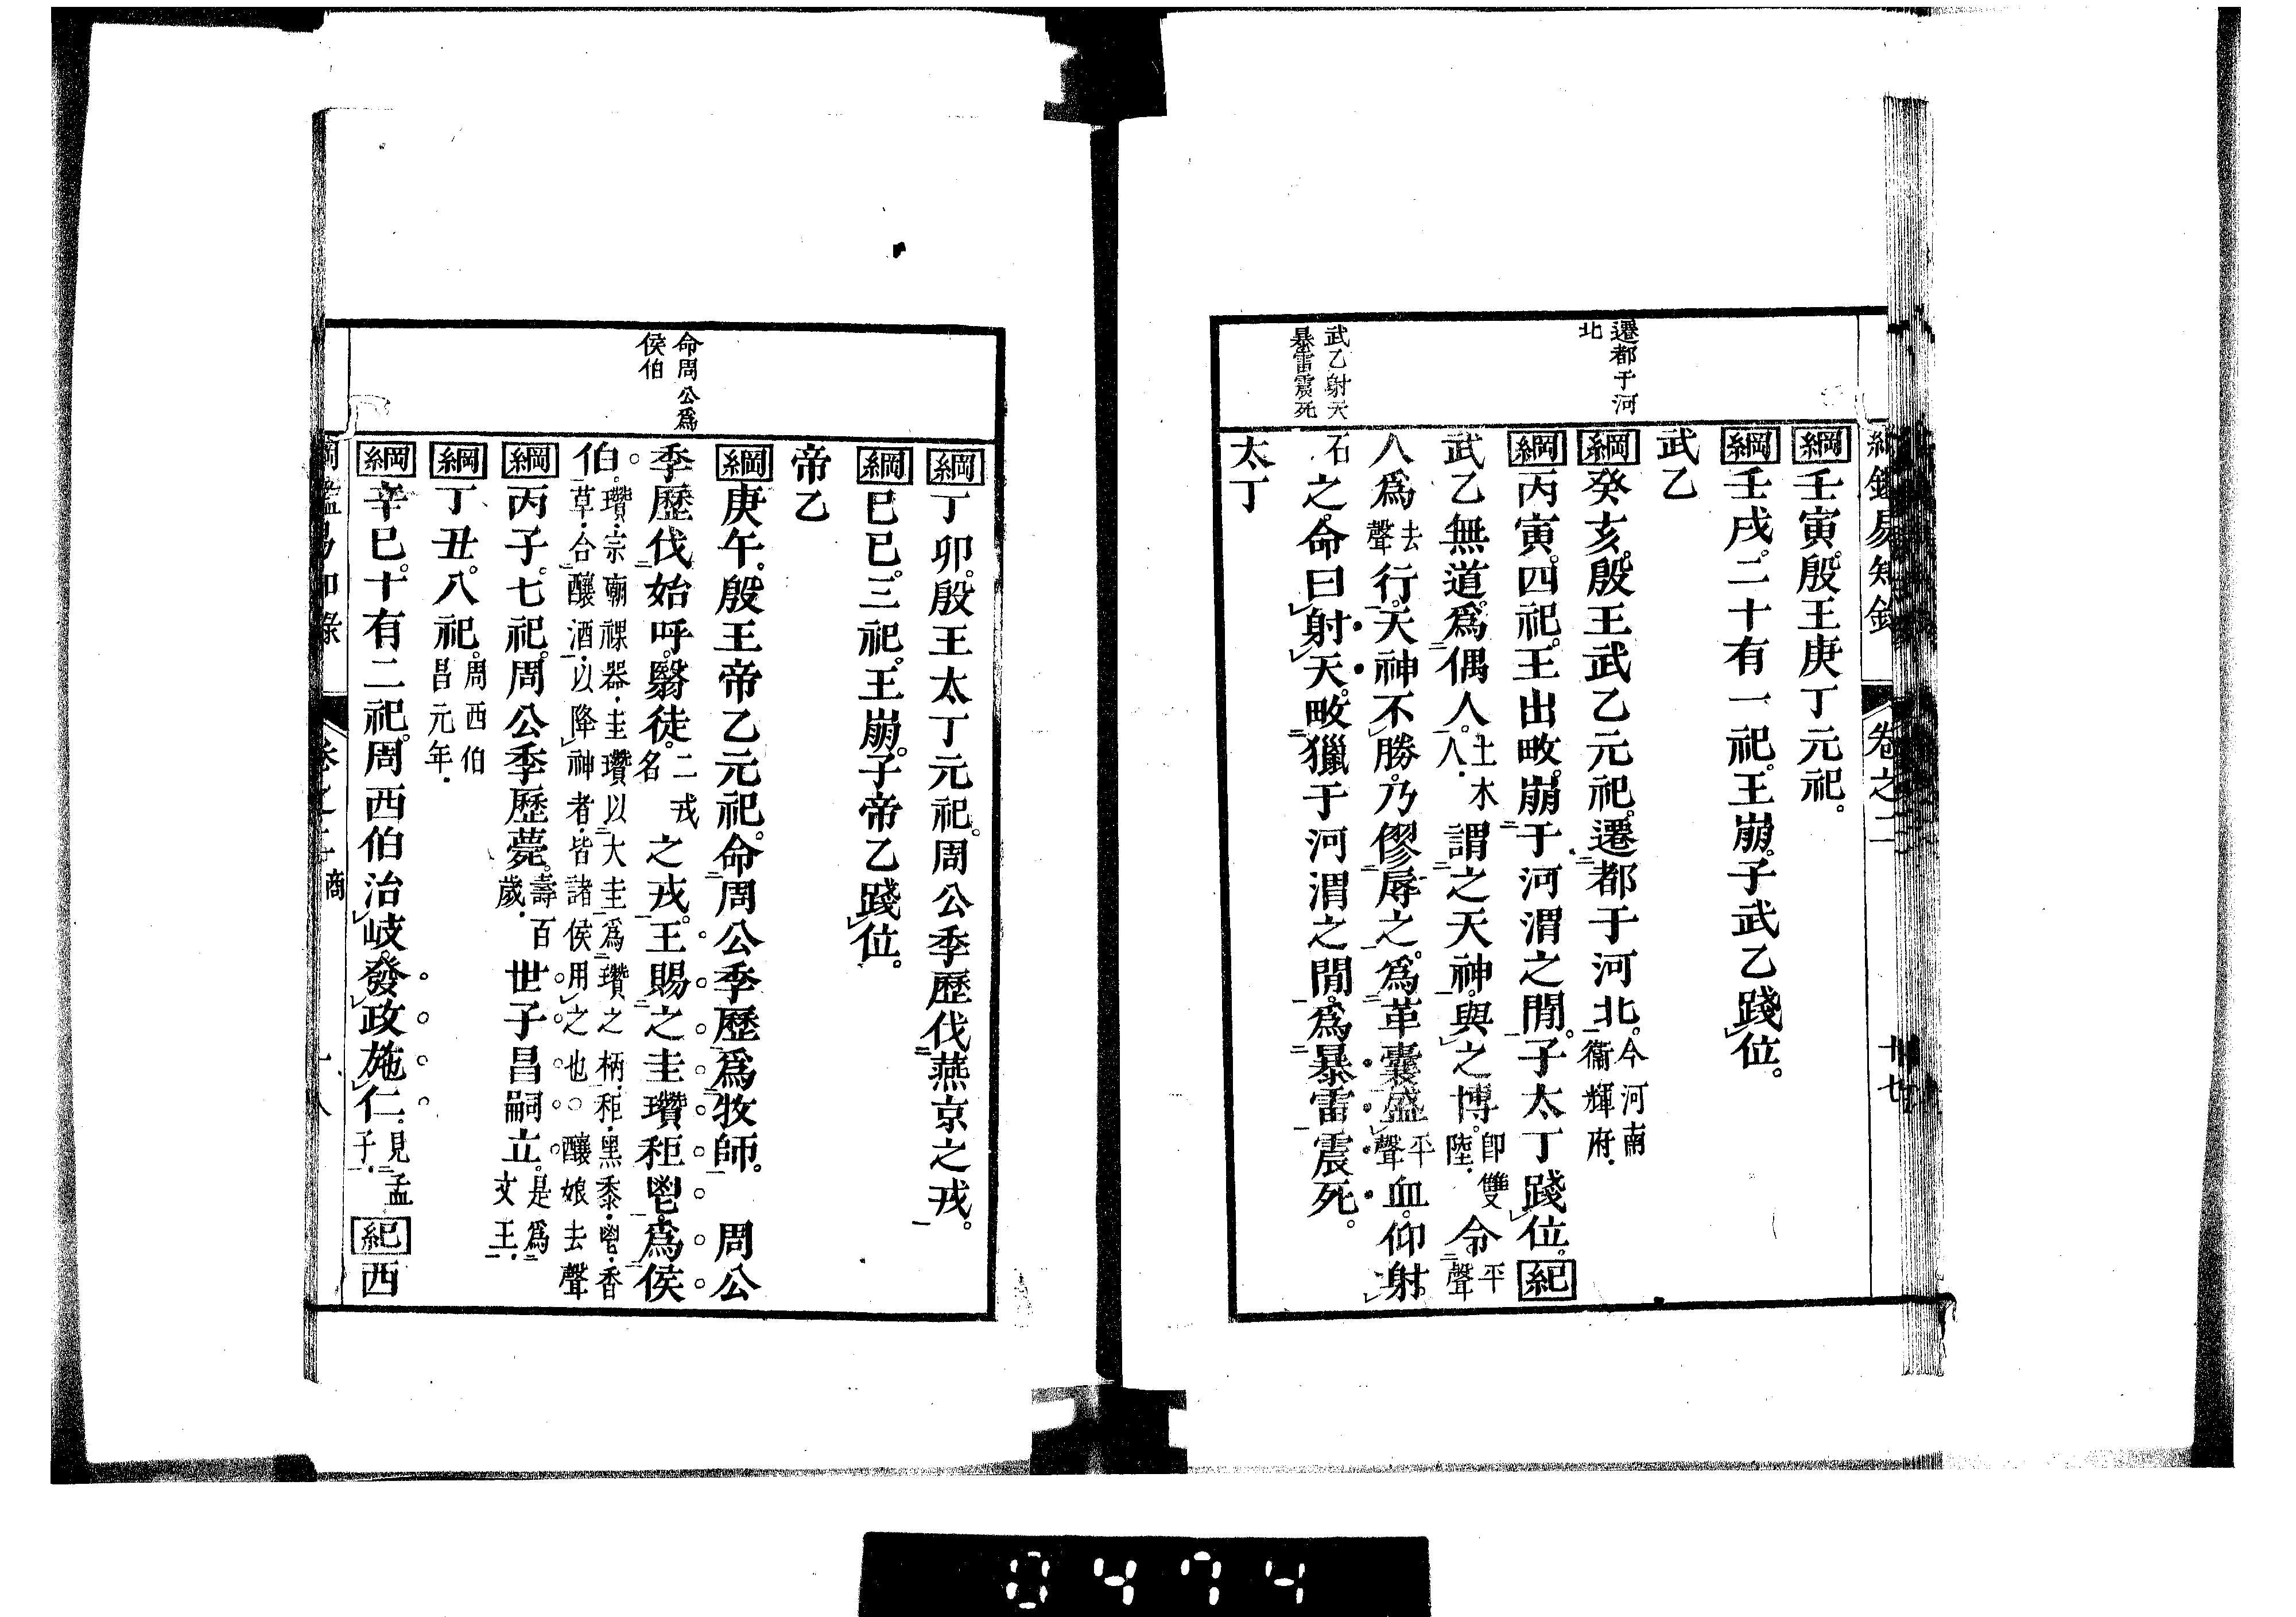 綱鑑易知錄
卷之二
遷都于河
北
武乙射天
暴雷震死
綱壬寅。殷王庚丁元祀。
綱壬戌。二十有一祀。王崩。子武乙踐位。
武乙
綱癸亥。殷王武乙元祀。遷都于河北。今河南衞輝府.
綱丙寅。四祀。王出畋。崩于河渭之閒。子太丁踐位。紀
武乙無道。爲偶人。土木人.謂之天神。與之博。卽雙陸.令平聲
人爲去聲行。天神不勝。乃僇辱之。爲革囊盛平聲血。仰射。
石之。命曰射天。畋獵于河渭之閒。爲暴雷震死。
太丁
命周公爲
侯伯
綱丁卯。殷王太丁元祀。周公季歷伐燕京之戎。
綱巳巳。三祀。王崩。子帝乙踐位。
帝乙
綱庚午。殷王帝乙元祀。命周公季歷爲牧師。周公
季歷伐始呼。翳徒。二戎名之戎。王賜之圭瓚秬鬯。爲侯
伯。瓚.宗廟祼器.圭瓚以大圭爲瓚之柄.秬.黑黍.鬯.香草.合釀酒.以降神者.皆諸侯用之也○釀娘去聲
綱丙子。七祀。周公季歷薨。壽百歲.世子昌嗣立。是爲文王.
綱丁丑。八祀。周西伯昌元年.
綱辛巳。十有二祀。周西伯治岐。發政施仁.見孟子.紀西
商
0474